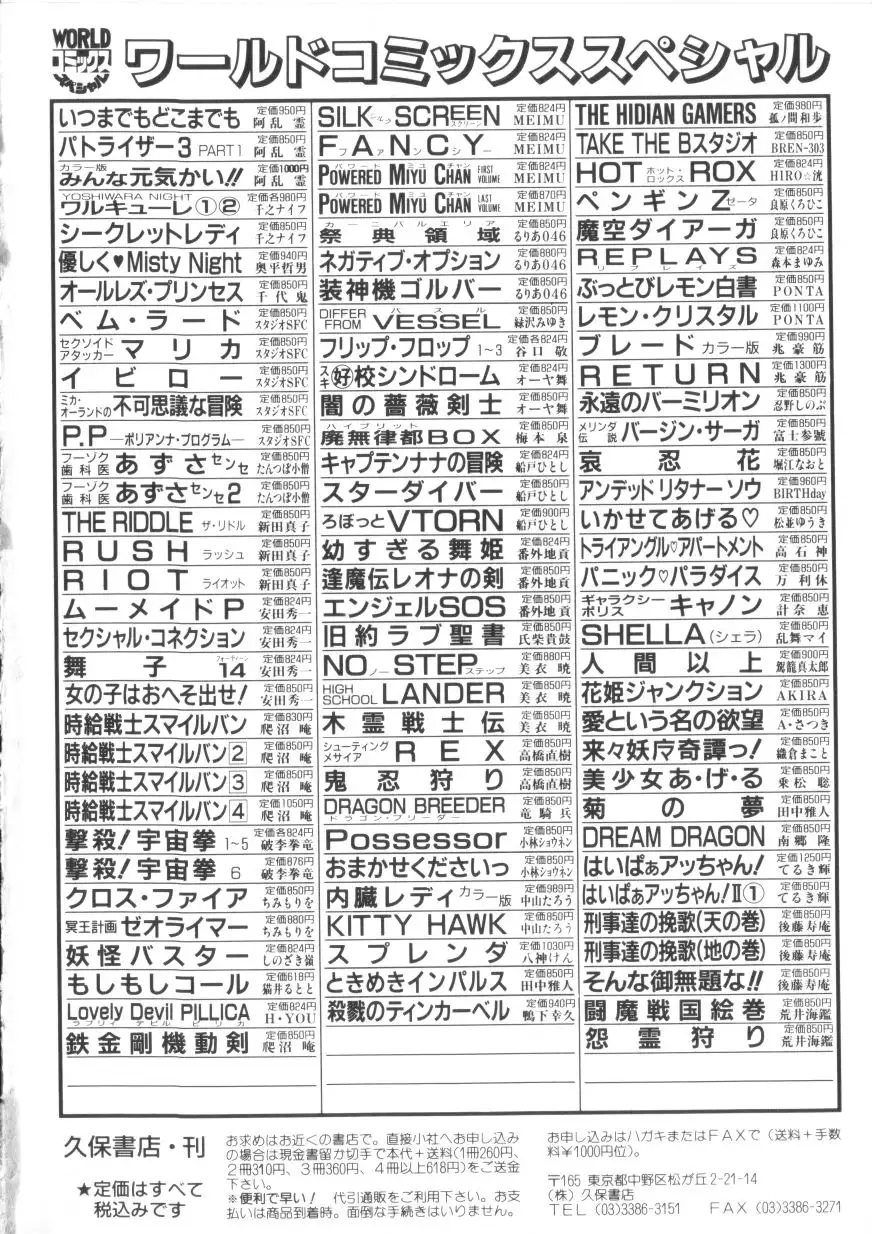 WORLD
コミックス
スペシャル
ワールドコミックススペシャル
いつまでもどこまでも 定価950円 阿乱霊
パトライザー3 PART1 定価850円 阿乱霊
カラー版 みんな元気かい!! 定価1000円 阿乱霊
YOSHIWARA NIGHT ワルキューレ①② 定価各980円 千之ナイフ
シークレットレディ 定価850円 千之ナイフ
優しく♥Misty Night 定価940円 奥平哲男
オールレズ・プリンセス 定価850円 千代鬼
ベム・ラード 定価850円 スタジオSFC
セクソイドアタッカー マリカ 定価850円 スタジオSFC
イビロー 定価850円 スタジオSFC
ミカ・オーランドの不可思議な冒険 定価850円 スタジオSFC
P.P―ポリアンナ・プログラム― 定価850円 スタジオSFC
フーゾク歯科医 あずさセンセ 定価850円 たんつぼ小僧
フーゾク歯科医 あずさセンセ2 定価850円 たんつぼ小僧
THE RIDDLE ザ・リドル 定価850円 新田真子
RUSH ラッシュ 定価850円 新田真子
RIOT ライオット 定価850円 新田真子
ムーメイドP 定価824円 安田秀一
セクシャル・コネクション 定価824円 安田秀一
舞子14 フォーティーン 定価824円 安田秀一
女の子はおへそ出せ! 定価850円 安田秀一
時給戦士スマイルバン 定価830円 爬沼庵
時給戦士スマイルバン2 定価850円 爬沼庵
時給戦士スマイルバン3 定価850円 爬沼庵
時給戦士スマイルバン4 定価1050円 爬沼庵
撃殺!宇宙拳 1~5 定価各824円 破李拳竜
撃殺!宇宙拳 6 定価876円 破李拳竜
クロス・ファイア 定価850円 ちみもりを
冥王計画 ゼオライマー 定価880円 ちみもりを
妖怪バスター 定価824円 しのざき嶺
もしもしコール 定価618円 猫井るとと
Lovely Devil PILLICA ラブリィ デビル ピリカ 定価824円 H・YOU
鉄金剛機動剣 定価850円 爬沼庵
SILK シルク SCREEN スクリーン 定価824円 MEIMU
FANCY ファンシー 定価824円 MEIMU
パワード ミュ チャン POWERED MIYU CHAN FIRST VOLUME 定価824円 MEIMU
パワード ミュ チャン POWERED MIYU CHAN LAST VOLUME 定価870円 MEIMU
カーニバルエリア 祭典領域 定価850円 るりあ046
ネガティブ・オプション 定価880円 るりあ046
装神機ゴルバー 定価850円 るりあ046
DIFFER FROM VESSEL 定価850円 緑沢みゆき
フリップ・フロップ 1~3 定価各824円 谷口敬
スキ 好校シンドローム 定価824円 オーヤ舞
闇の薔薇剣士 定価850円 オーヤ舞
ハイブリット 廃無律都BOX 定価850円 梅本泉
キャプテンナナの冒険 定価824円 船戸ひとし
スターダイバー 定価850円 船戸ひとし
ろぼっとVTORN 定価900円 船戸ひとし
幼すぎる舞姫 定価824円 番外地貢
逢魔伝レオナの剣 定価850円 番外地貢
エンジェルSOS 定価850円 番外地貢
旧約ラブ聖書 定価850円 氏柴貴鼓
NO ノー STEP ステップ 定価880円 美衣暁
HIGH SCHOOL LANDER 定価850円 美衣暁
木霊戦士伝 定価850円 美衣暁
シューティングメサイア REX 定価850円 高橋直樹
鬼忍狩り 定価850円 高橋直樹
DRAGON BREEDER ドラゴン・ブリーダー 定価824円 竜騎兵
Possessor 定価850円 小林ショウネン
おまかせくださいっ 定価850円 小林ショウネン
内臓レディ カラー版 定価989円 中山たろう
KITTY HAWK 定価850円 中山たろう
スプレンダ 定価1030円 八神けん
ときめきインパルス 定価850円 田中雅人
殺戮のティンカーベル 定価940円 鴨下幸久
THE HIDIAN GAMERS 定価980円 狐ノ間和歩
TAKE THE Bスタジオ 定価850円 BREN-303
HOT ホット・ロックス ROX 定価824円 HIRO☆洸
ペンギンZ ゼータ 定価850円 良原くろひこ
魔空ダイアーガ 定価850円 良原くろひこ
REPLAYS リプレイズ 定価824円 森本まゆみ
ぶっとびレモン白書 定価850円 PONTA
レモン・クリスタル 定価1100円 PONTA
ブレード カラー版 定価990円 兆豪筋
RETURN 定価1300円 兆豪筋
永遠のバーミリオン 定価850円 忍野しのぶ
メリンダ伝説 バージン・サーガ 定価850円 富士参號
哀忍花 定価850円 堀江なおと
アンデッドリタナーソウ 定価960円 BIRTHday
いかせてあげる♡ 定価850円 松並ゆうき
トライアングル♡アパートメント 定価850円 高石神
パニック♡パラダイス 定価850円 万利休
ギャラクシーポリス キャノン 定価850円 計奈恵
SHELLA(シェラ) 定価850円 乱舞マイ
人間以上 定価900円 駕籠真太郎
花姫ジャンクション 定価850円 AKIRA
愛という名の欲望 定価850円 A・さつき
来々妖庁奇譚っ! 定価850円 織倉まこと
美少女あ・げ・る 定価850円 乗松聡
菊の夢 定価850円 田中雅人
DREAM DRAGON 定価850円 南郷隆
はいぱぁアッちゃん! 定価1250円 てるき輝
はいぱぁアッちゃん!Ⅱ① 定価850円 てるき輝
刑事達の挽歌(天の巻) 定価850円 後藤寿庵
刑事達の挽歌(地の巻) 定価850円 後藤寿庵
そんな御無題な!! 定価850円 後藤寿庵
闘魔戦国絵巻 定価850円 荒井海鑑
怨霊狩り 定価850円 荒井海鑑
久保書店・刊
★定価はすべて
税込みです
お求めはお近くの書店で。直接小社へお申し込み
の場合は現金書留か切手で本代+送料(1冊260円、
2冊310円、3冊360円、4冊以上618円)をご送金
下さい。
※便利で早い! 代引通販をご利用下さい。お支
払いは商品到着時。面倒な手続きはいりません。
お申し込みはハガキまたはFAXで(送料+手数
料¥1000円位)。
〒165 東京都中野区松が丘2-21-14
(株)久保書店
TEL (03)3386-3151 FAX (03)3386-3271